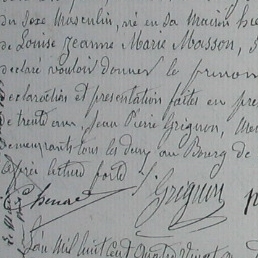 du Sexe Masculin, né en sa maison hie
de Louise Jeanne Marie Masson, s
déclaré vouloir donner le prénom
déclaration et présentation faites en pré
de trente ans, Jean Pierre Grignon, Me
demeurant tous les deux au Bourg de
après lecture faite
Grignon
L'an Mil huit Cent Quatre Vingt